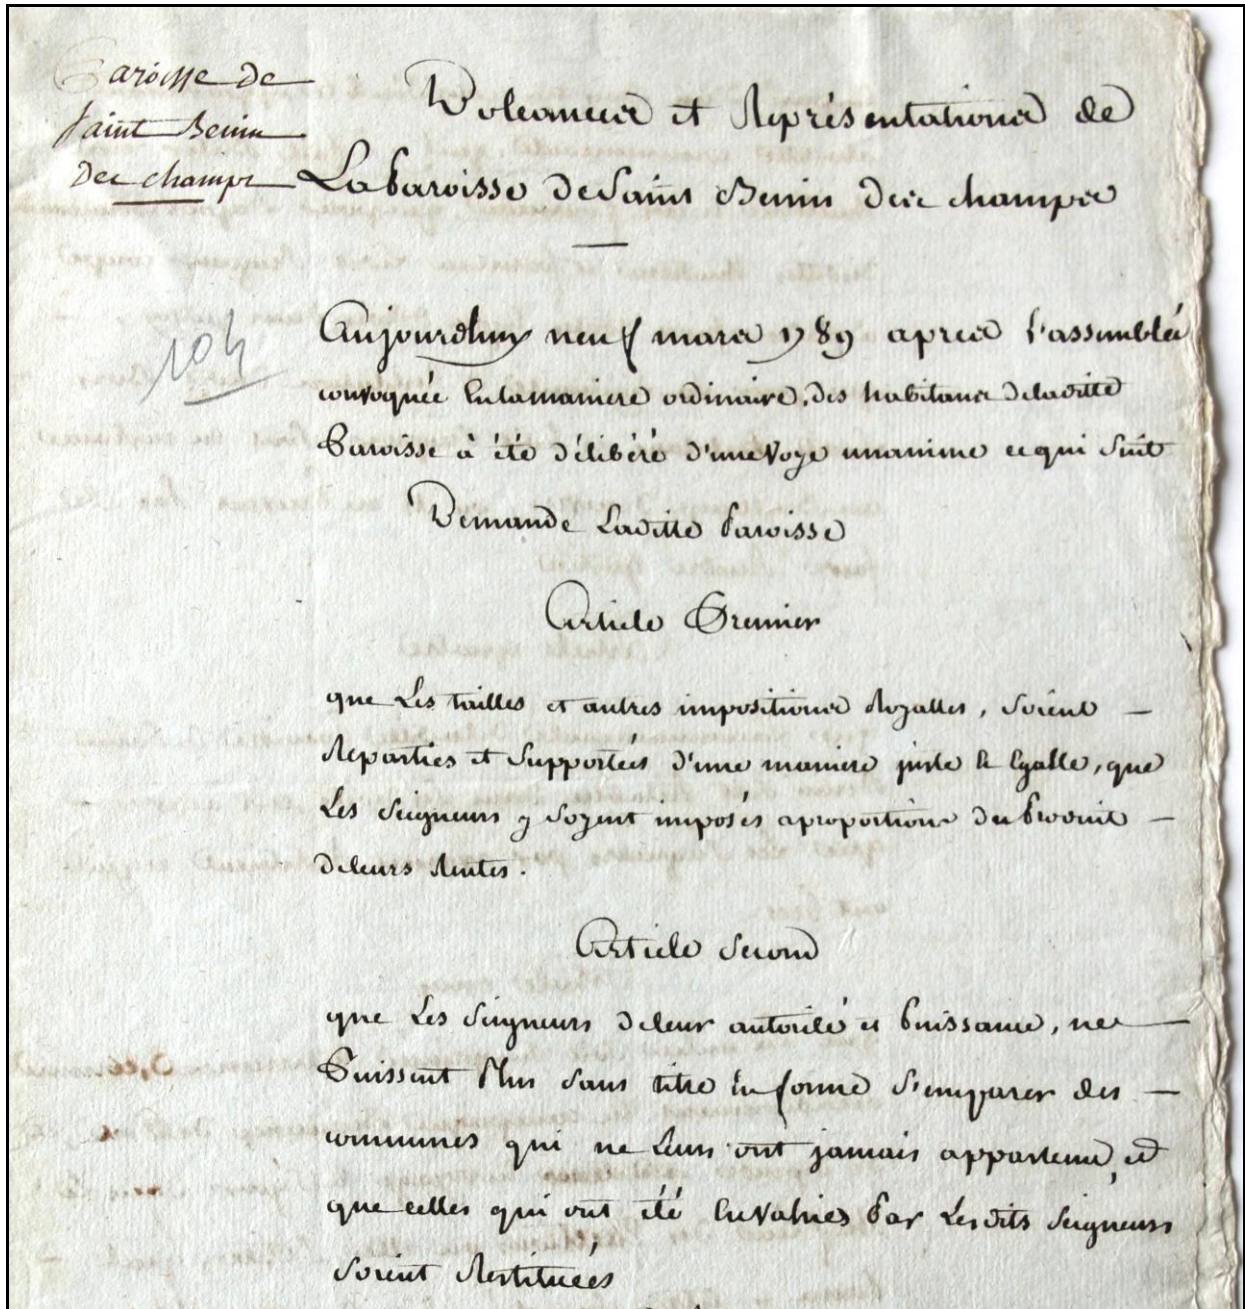 Paroisse de
saint Benin
Des champs
Doleances et Représentations de
La Paroisse de Saint Benin des champs
104
Aujourdhuy neuf mars 1789 apres l'assemblée
convoquée En la maniere ordinaire, des habitans de laditte
Paroisse à été délibéré d'une Voye unanime ce qui Suit
Demande Laditte Paroisse
Article Premier
que Les tailles et autres impositions Royalles, soient —
Reparties et Supportées d'une maniere juste & Egalle, que
Les Seigneurs y Soyent imposés a proportion du Produit —
de leurs Rentes.
Article Second
que Les Seigneurs de leur autorité et Puissance, ne —
Puissent Plus Sans titre En forme S'emparer des —
communes qui ne Leurs ont jamais appartenu, et
que celles qui ont été Envahies Par Lesdits Seigneurs
Soient Restituées